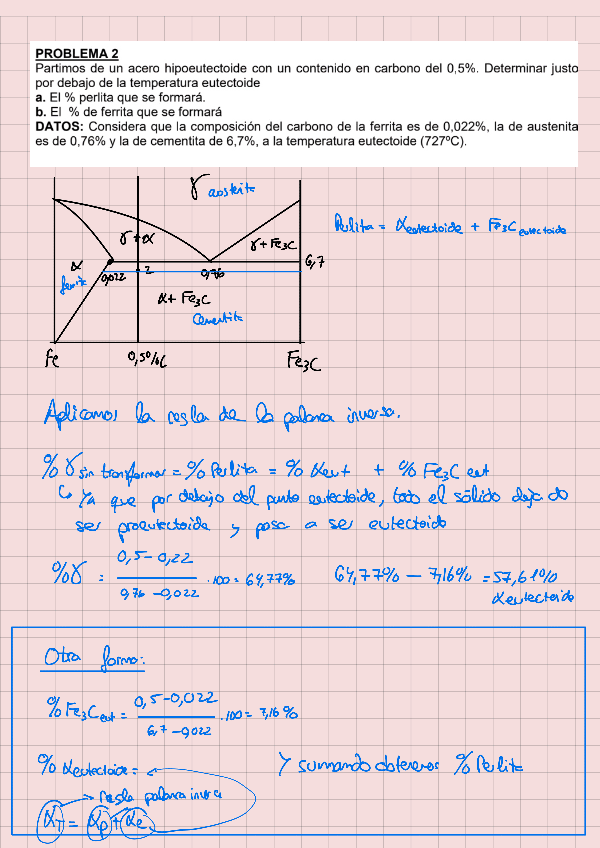 PROBLEMA 2
Partimos de un acero hipoeutectoide con un contenido en carbono del 0,5%. Determinar justo
por debajo de la temperatura eutectoide
a. El % perlita que se formará.
b. El % de ferrita que se formará
DATOS: Considera que la composición del carbono de la ferrita es de 0,022%, la de austenita
es de 0,76% y la de cementita de 6,7%, a la temperatura eutectoide (727ºC).
γ austenita
Perlita = αeutectoide + Fe3C eutectoide
γ+α
γ+Fe3C
α
ferrita
0,022
2
0,76
6,7
α+ Fe3C
Cementita
Fe
0,5%C
Fe3C
Aplicamos la regla de la palanca inversa.
% γ sin transformar = % Perlita = % αeut + % Fe3C eut
Ya que por debajo del punto eutectoide, todo el sólido deja de
ser proeutectoide y pasa a ser eutectoide
%γ = 0,5-0,22 / 0,76 -0,022 · 100 = 64,77%
64,77% - 7,16% = 57,61%
αeutectoide
Otra forma:
% Fe3C eut = 0,5-0,022 / 6,7 -0,022 · 100 = 7,16 %
% αeutectoide =
Y sumando obtenemos % Perlita
→ regla palanca inversa
αT = αp + αe